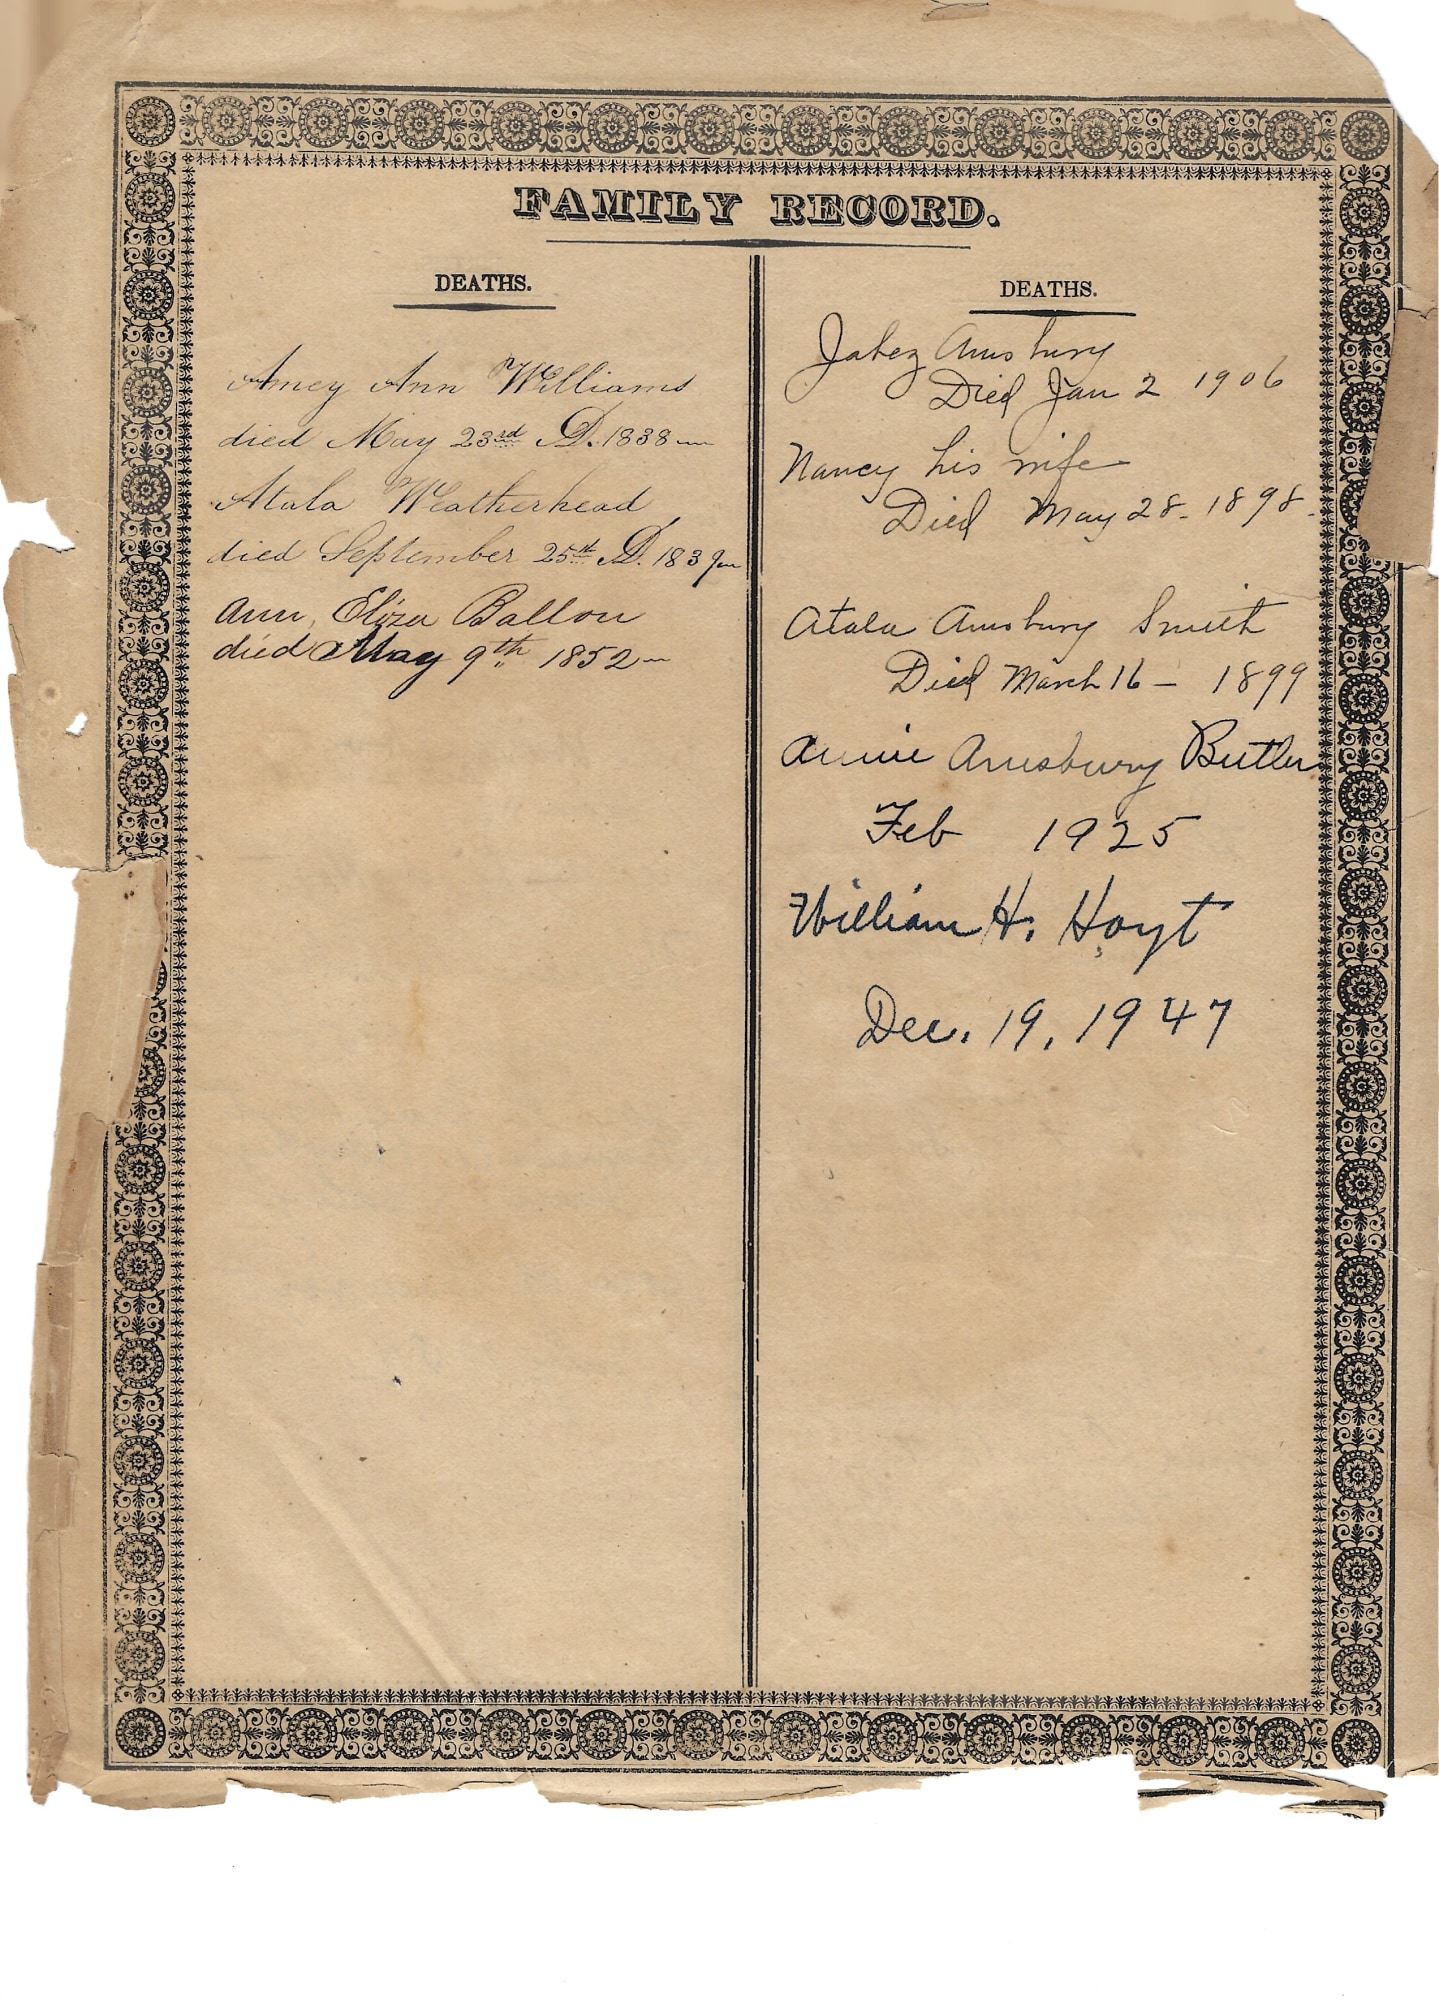 FAMILY RECORD.
DEATHS.
Amey Ann Williams
died May 23rd AD. 1838
Atala Weatherhead
died September 25th AD. 1839
Ann, Eliza Ballou
died May 9th 1852
DEATHS.
Jabez Amsbury
Died Jan 2 1906
Nancy his wife
Died May 28 - 1898 -
Atala Amsbury Smith
Died March 16 - 1899
Annie Amesbury Butler
Feb 1925
William H. Hoyt
Dec. 19, 1947